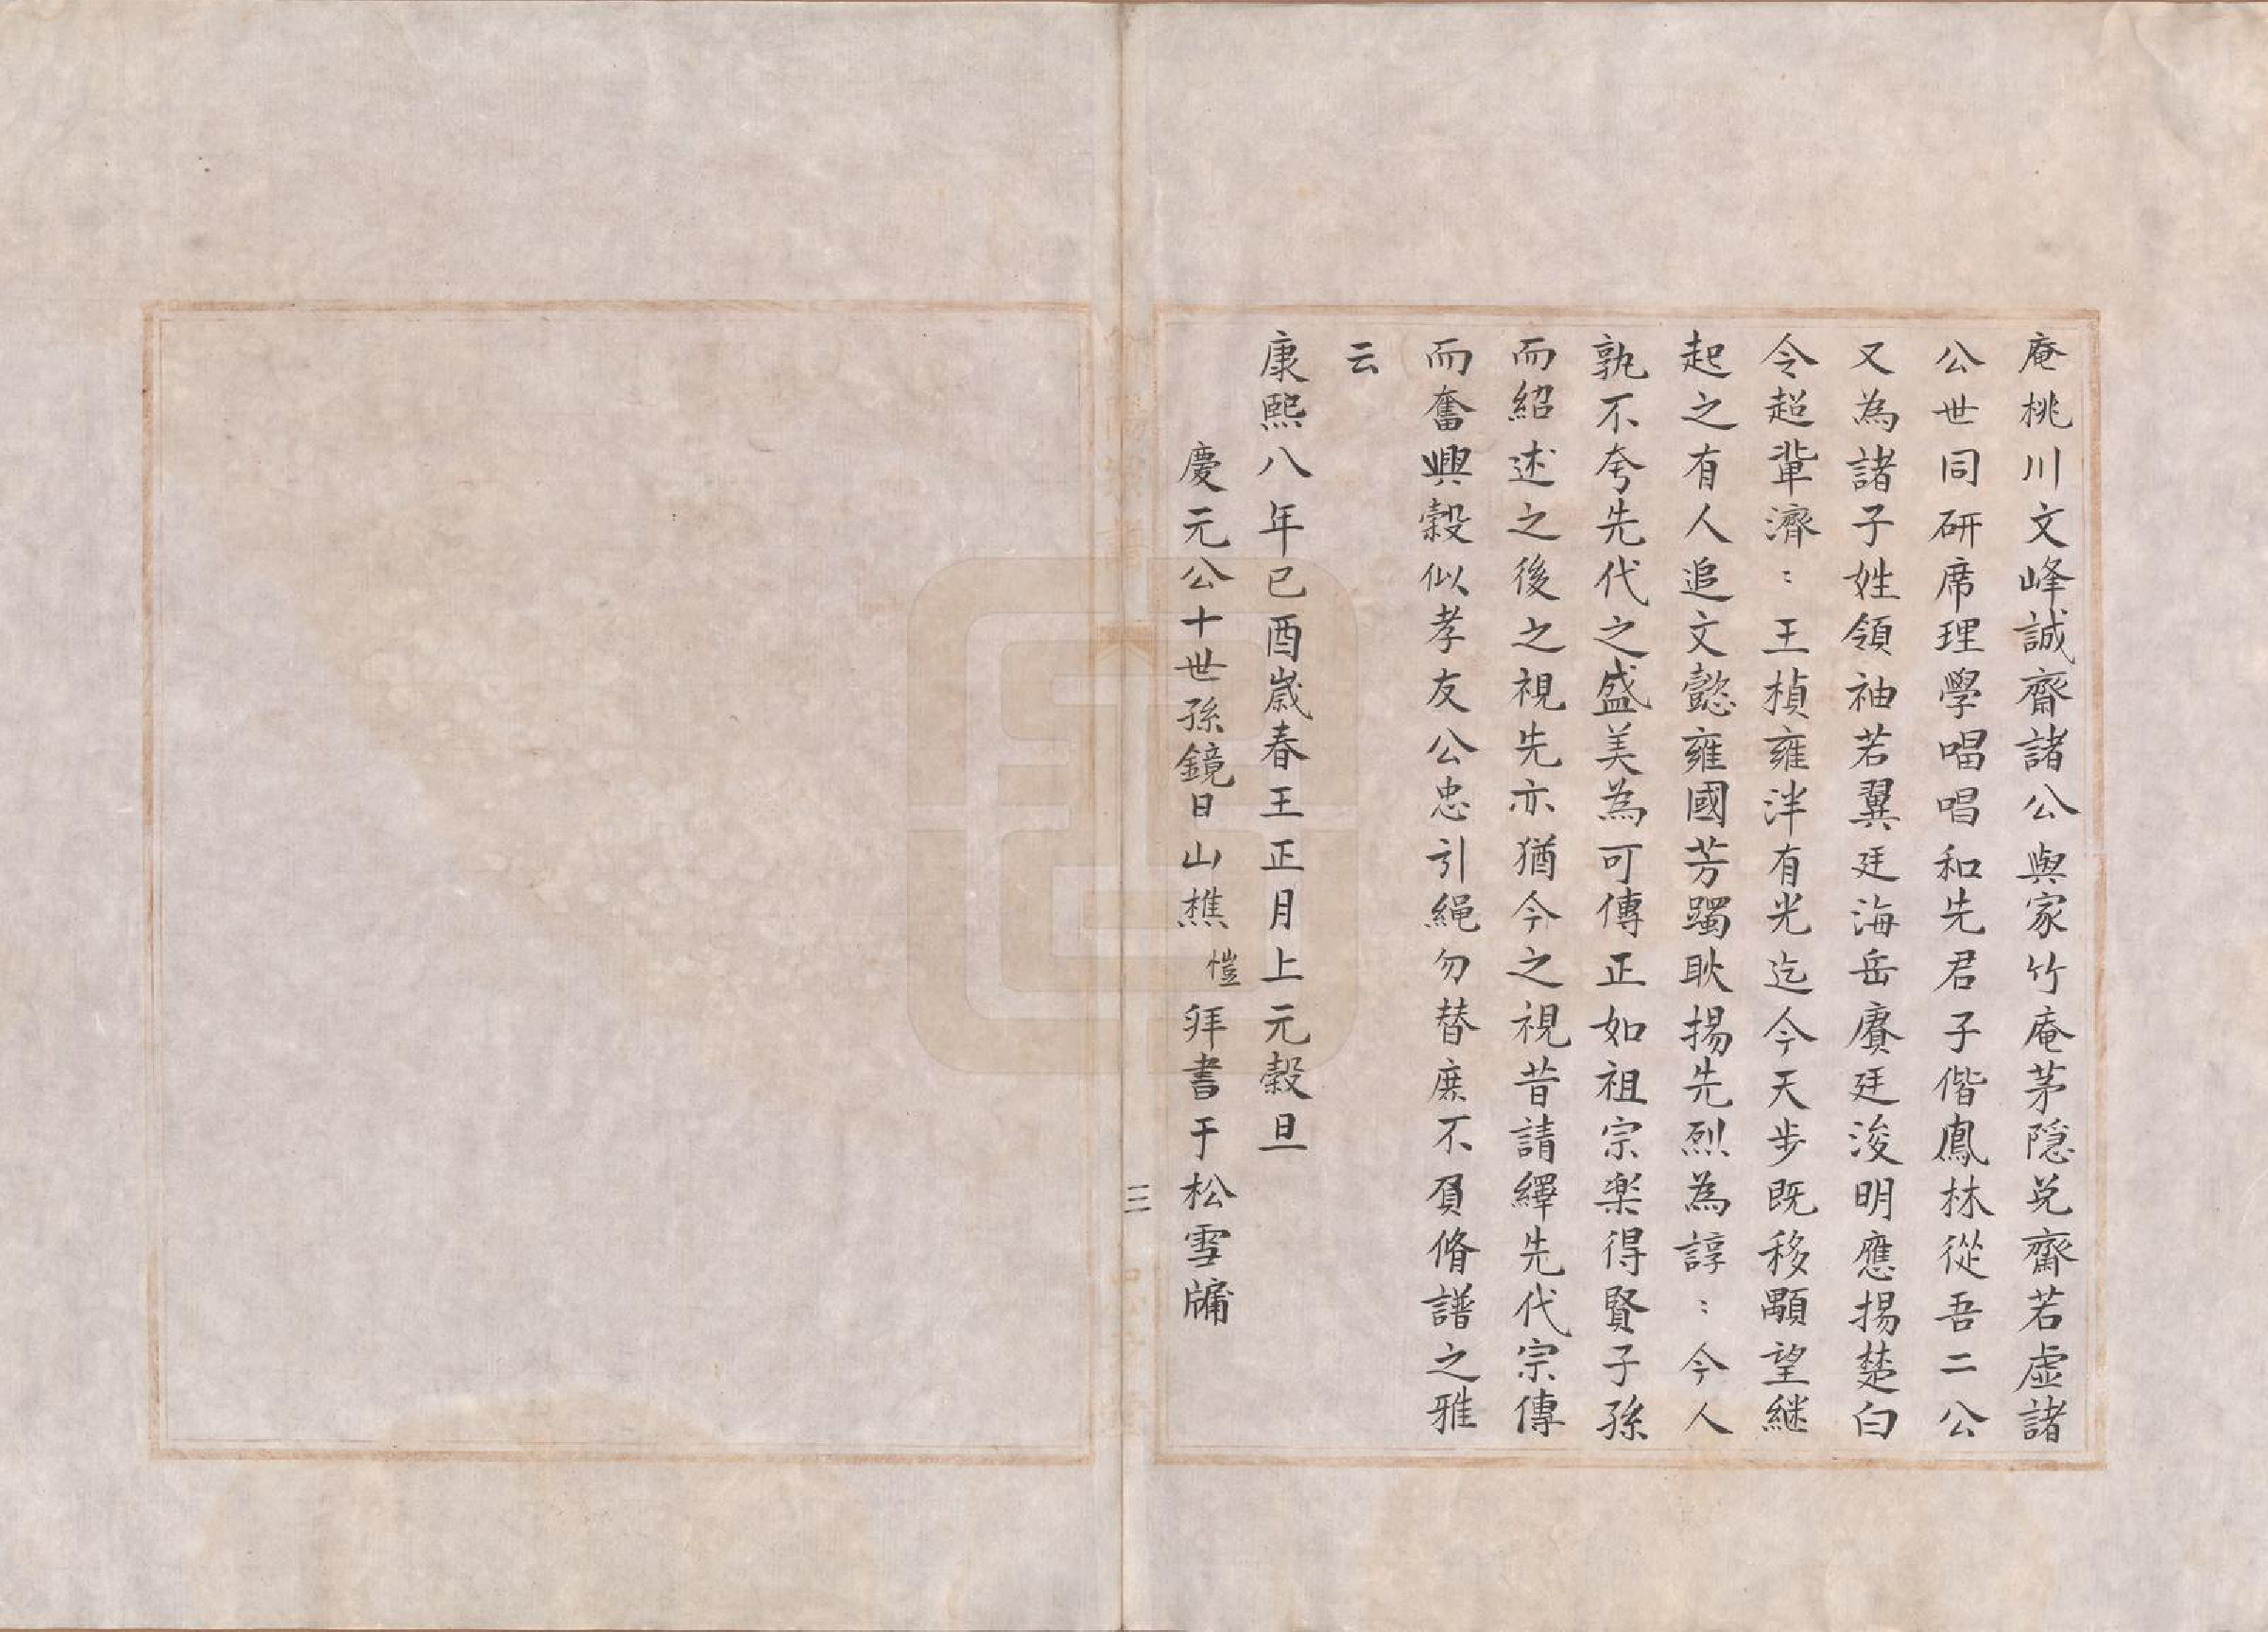 庵桃川文峰誠齋諸公與家竹庵茅隱兌齋若虛諸
公世同研席理學唱唱和先君子偕鳳林從吾二公
又為諸子姓領袖若翼廷海岳賡廷浚明應揚楚白
令超輩濟﹕王楨雍泮有光迄今天步既移顒望継
起之有人追文懿雍國芳躅耿揚先烈為諄﹕今人
孰不夸先代之盛美為可傳正如祖宗楽得賢子孫
而紹述之後之視先亦猶今之視昔請繹先代宗傳
而奮興穀似孝友公忠引繩勿替庶不負脩譜之雅
云
康熙八年已酉嵗春王正月上元穀旦
慶元公十世孫鏡日山樵愷拜書于松雪牗
三